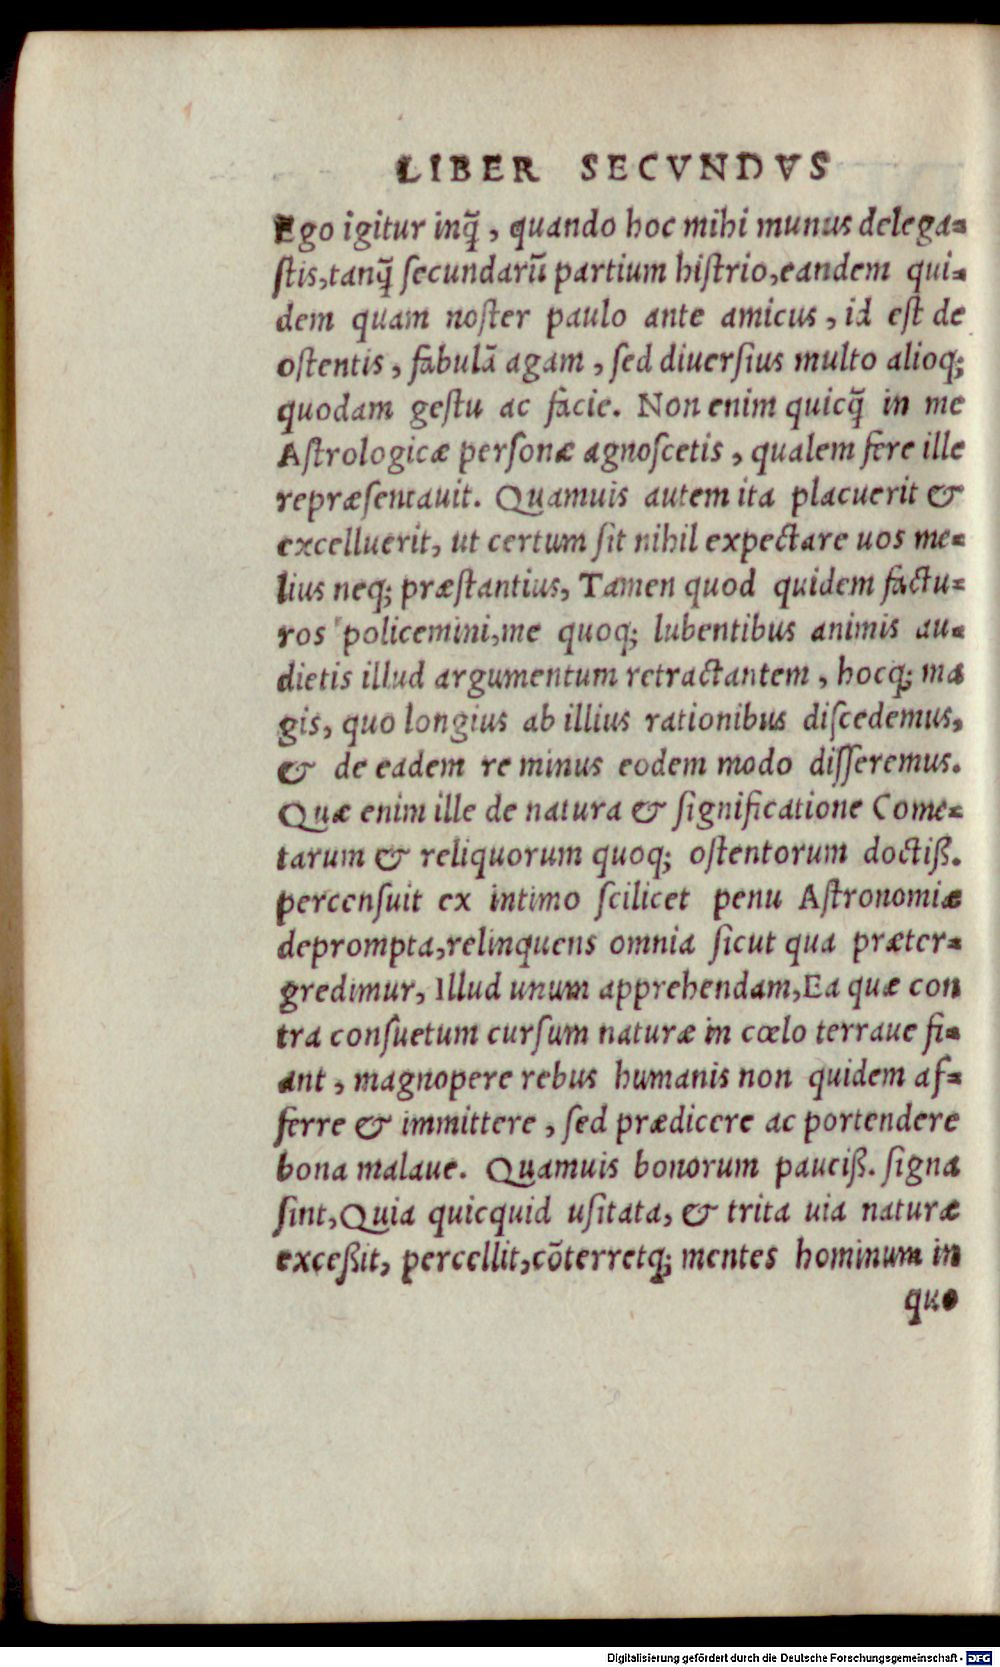 LIBER SECVNDVS
Ego igitur inq̃, quando hoc mihi munus delega=
ſtis,tanq̃ ſecundarũ partium hiſtrio,eandem qui=
dem quam noſter paulo ante amicus, id eſt de
oſtentis, fabulã agam, ſed diuerſius multo alioq;
quodam geſtu ac facie. Non enim quicq̃ in me
Aſtrologicæ perſonæ agnoſcetis, qualem fere ille
repræſentauit. Quamuis autem ita placuerit &
excelluerit, ut certum ſit nihil expectare uos me=
lius neq; præſtantius, Tamen quod quidem factu=
ros policemini,me quoq; lubentibus animis au=
dietis illud argumentum retractantem, hocq; ma
gis, quo longius ab illius rationibus diſcedemus,
& de eadem re minus eodem modo diſſeremus.
Quæ enim ille de natura & ſignificatione Come=
tarum & reliquorum quoq; oſtentorum doctiß.
percenſuit ex intimo ſcilicet penu Aſtronomiæ
deprompta,relinquens omnia ſicut qua præter=
gredimur, Illud unum apprehendam,Ea quæ con
tra conſuetum curſum naturæ in cœlo terraue fi=
ant, magnopere rebus humanis non quidem af=
ferre & immittere, ſed prædicere ac portendere
bona malaue. Quamuis bonorum pauciß. ſigna
ſint,Quia quicquid uſitata, & trita uia naturæ
exceßit, percellit,cõterretq; mentes hominum in
quo
Digitalisierung gefördert durch die Deutsche Forschungsgemeinschaft - DFG